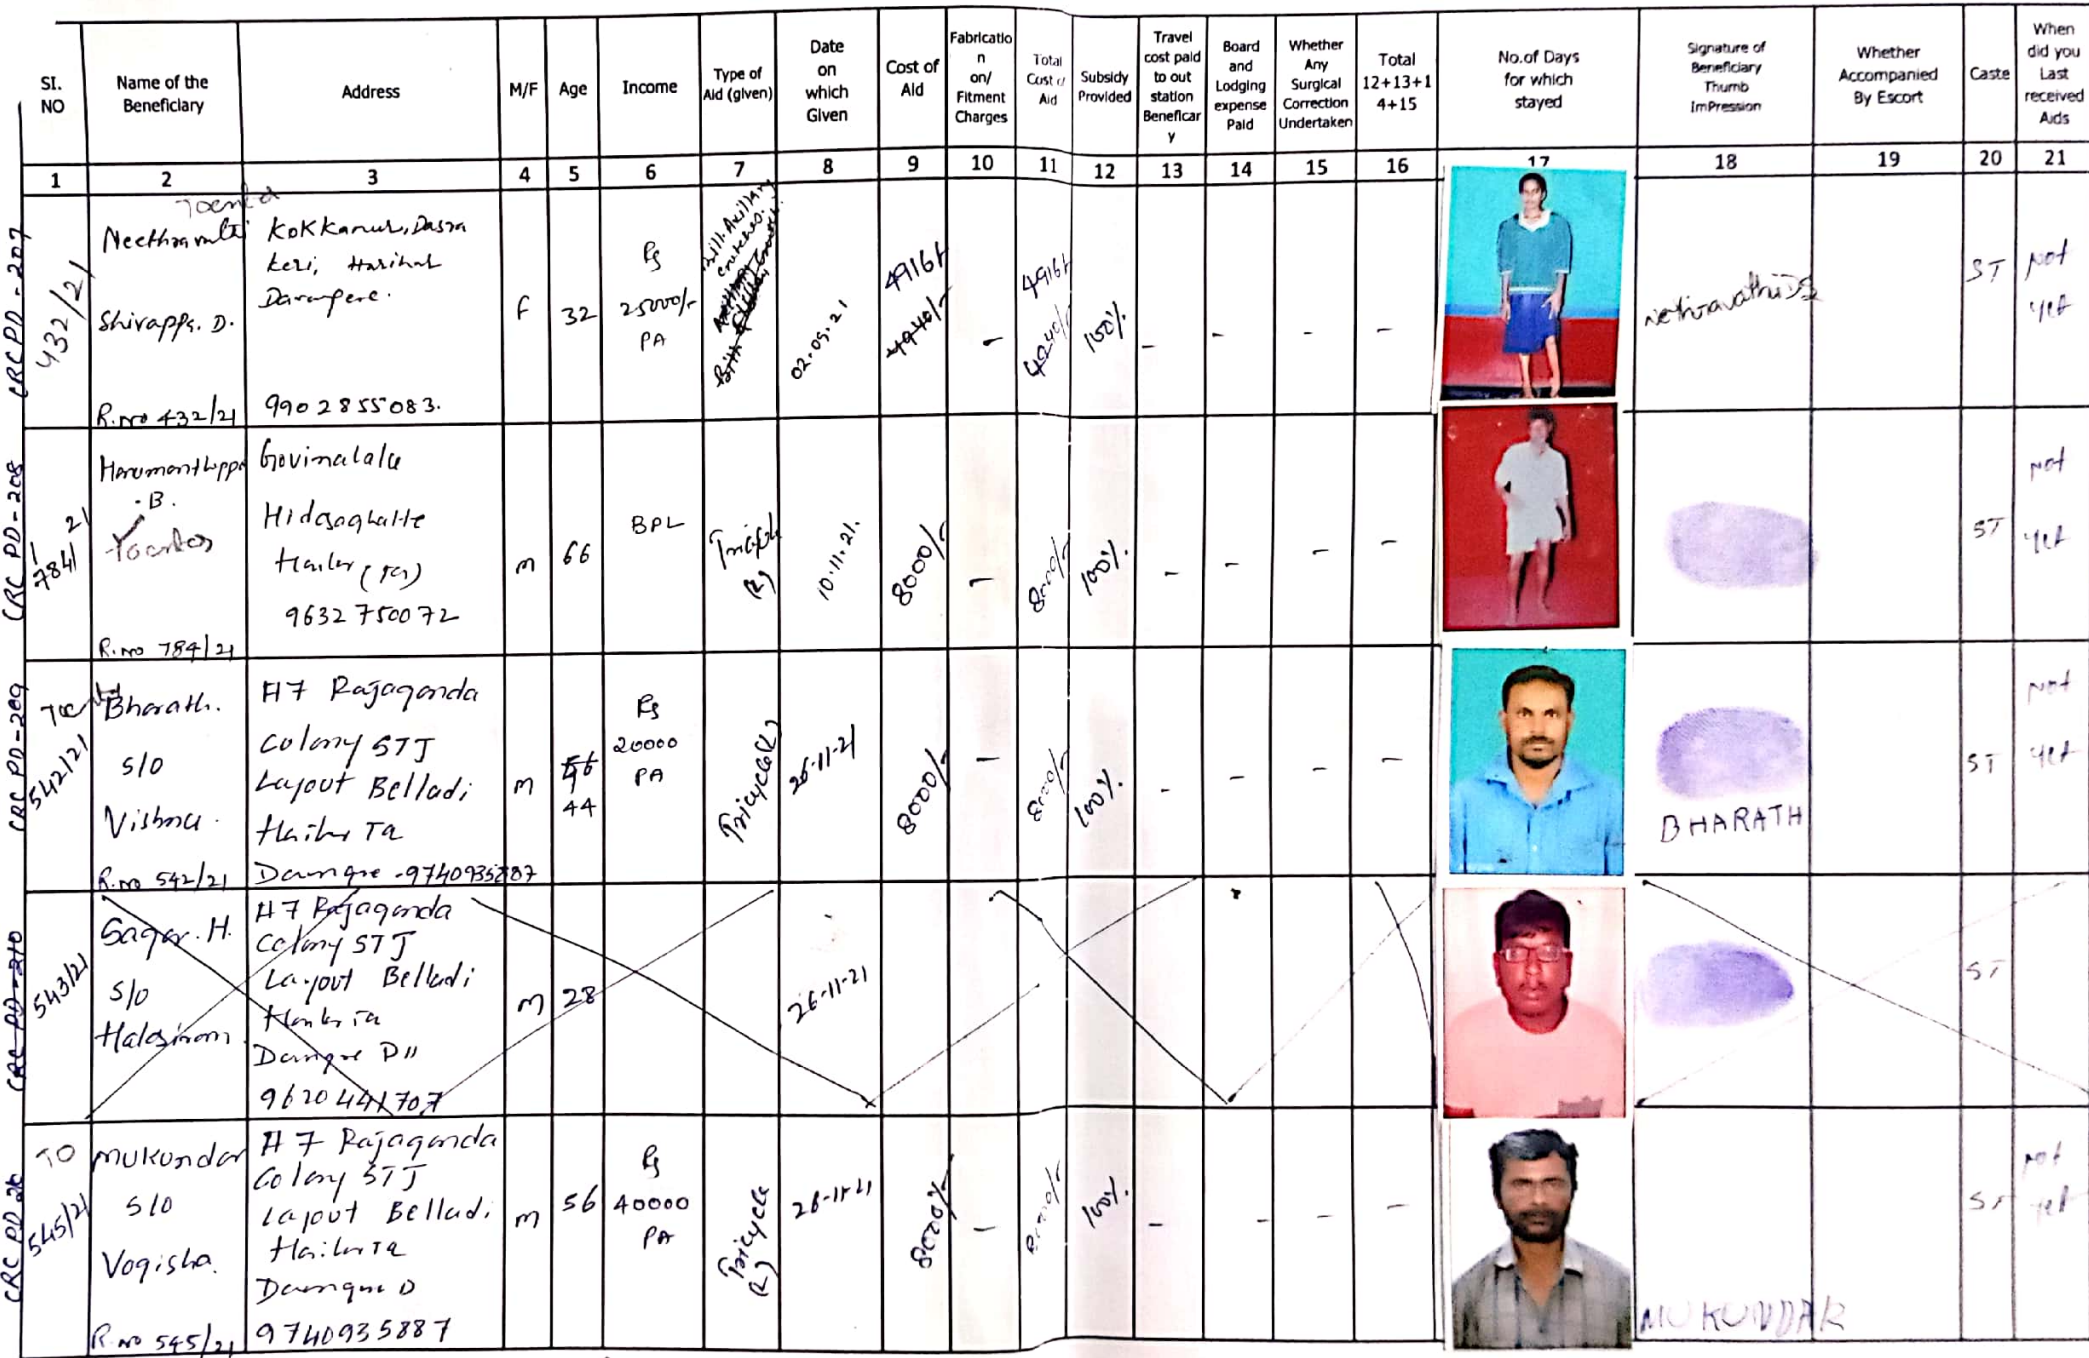 SI. NO
Name of the Beneficiary
Address
M/F
Age
Income
Type of Aid (given)
Date on which Given
Cost of Aid
Fabricatio n on/ Fitment Charges
Total Cost of Aid
Subsidy Provided
Travel cost paid to out station Beneficar y
Board and Lodging expense Paid
Whether Any Surgical Correction Undertaken
Total 12+13+1 4+15
No.of Days for which stayed
Signature of Beneficiary Thumb ImPression
Whether Accompanied By Escort
Caste
When did you Last received Aids
1 2 3 4 5 6 7 8 9 10 11 12 13 14 15 16 17 18 19 20 21
CRC PD -207
432/21
Shivappa. D.
R.no 432/21
Kokkanur, Dasra
Keri, Harihar
9902855083.
F
32
Rs
25000/-
PA
02.09.21
4916/-
4940/-
-
4916/-
4940/-
100%
-
-
-
-
ST
Not
yet
CRC PD -208
784/21
Hanumanthappa
.B.
R.no 784/21
9632750072
m
66
BPL
(R)
10.11.21.
8000/-
-
8000/-
100%
-
-
-
-
ST
Not
yet
CRC PD -209
542/21
Bharath.
S/O
Vishnu.
R.no 542/21
H7 Rajaganda
Colony STJ
Layout Belladi
m
44
Rs
20000
PA
Tricycle(R)
26-11-21
8000/-
-
8000/-
100%
-
-
-
-
BHARATH
ST
Not
yet
CRC PD -210
543/21
Sagar. H.
S/O
H7 Rajaganda
Colony STJ
Layout Belladi
9620441707
m
28
26-11-21
ST
CRC PD 210
TO
545/21
Mukundar
S/O
Vogisha.
R.no 545/21
H7 Rajaganda
Colony STJ
Layout Belladi
9740935887
m
56
Rs
40000
PA
Tricycle
(R)
8000/-
-
8000/-
100%
-
-
-
-
MUKUNDAR
ST
Not
yet